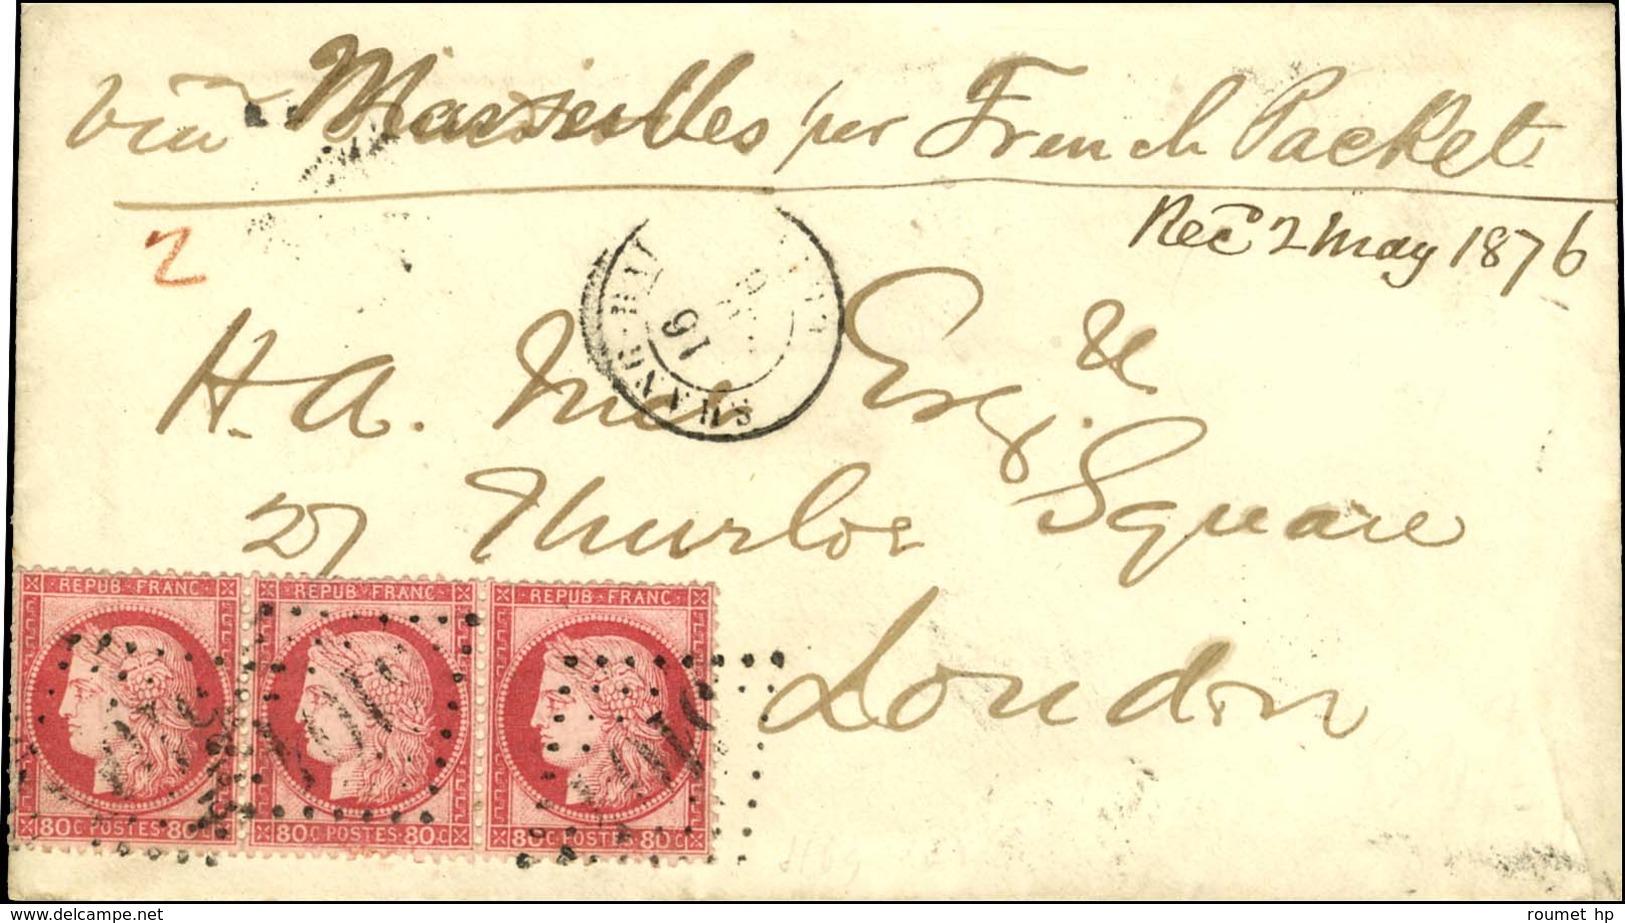 via Marseilles per French Packet
Recd 2 May 1876
2
SHANG-HAI
16
H. A. Esqr
27 Thurloe Square
London
REPUB·FRANC·
80C·POSTES·80C
REPUB·FRANC·
80C·POSTES·80C
REPUB·FRANC·
80C·POSTES·80C
www.delcampe.net
roumet hp